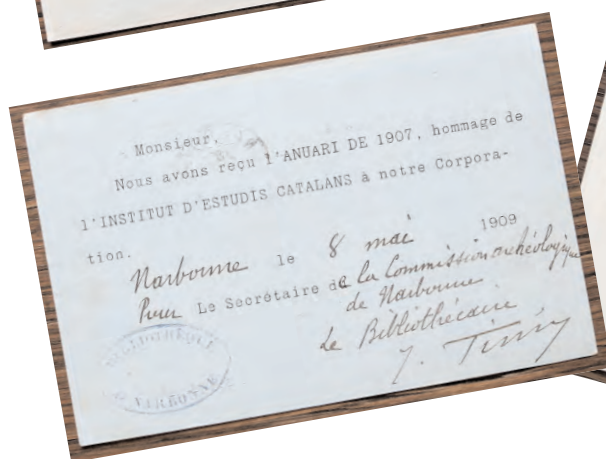 Monsieur,
Nous avons reçu l'ANUARI DE 1907, hommage de
l'INSTITUT D'ESTUDIS CATALANS à notre Corpora-
tion.
Narbonne le 8 mai 1909
Pour Le Secrétaire de la Commission archéologique
de Narbonne
Le Bibliothécaire
J.
BIBLIOTHÈQUE
NARBONNE